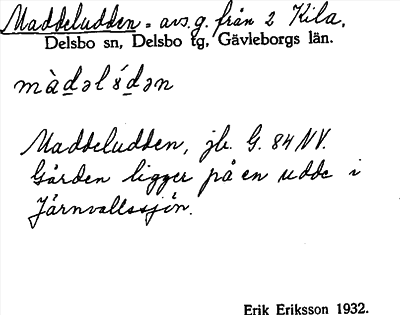 Maddeludden = avs.g. från 2 Kila.
Delsbo sn, Delsbo tg, Gävleborgs län.
màdəlúdən
Maddeludden, jb. G. 84 NV.
Gården ligger på en udde i
Järnvallssjön.
Erik Eriksson 1932.